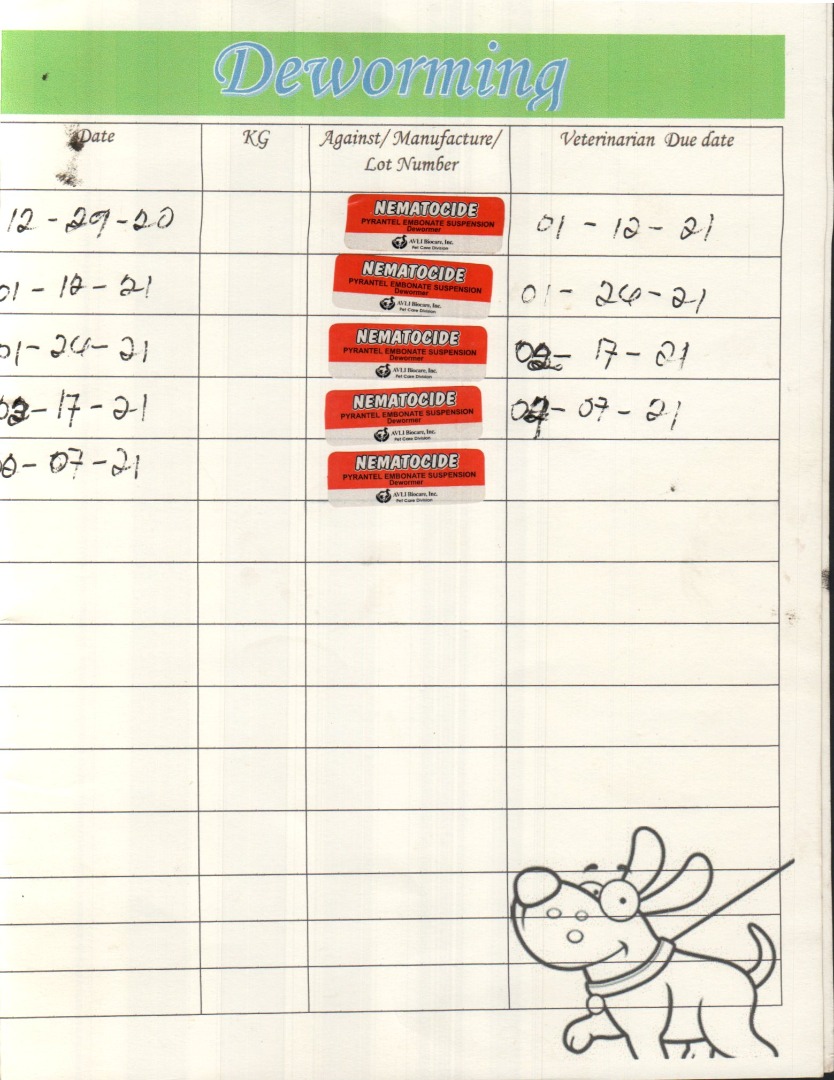 Deworming
Date KG Against/ Manufacture/ Veterinarian Due date
Lot Number
12-29-20 NEMATOCIDE 01-12-21
PYRANTEL EMBONATE SUSPENSION
Dewormer
AVLI Biocare, Inc.
Pet Care Division
01-12-21 NEMATOCIDE 01-26-21
PYRANTEL EMBONATE SUSPENSION
Dewormer
AVLI Biocare, Inc.
Pet Care Division
01-26-21 NEMATOCIDE 17-21
PYRANTEL EMBONATE SUSPENSION
Dewormer
AVLI Biocare, Inc.
Pet Care Division
17-21 NEMATOCIDE 07-21
PYRANTEL EMBONATE SUSPENSION
Dewormer
AVLI Biocare, Inc.
Pet Care Division
07-21 NEMATOCIDE
PYRANTEL EMBONATE SUSPENSION
Dewormer
AVLI Biocare, Inc.
Pet Care Division